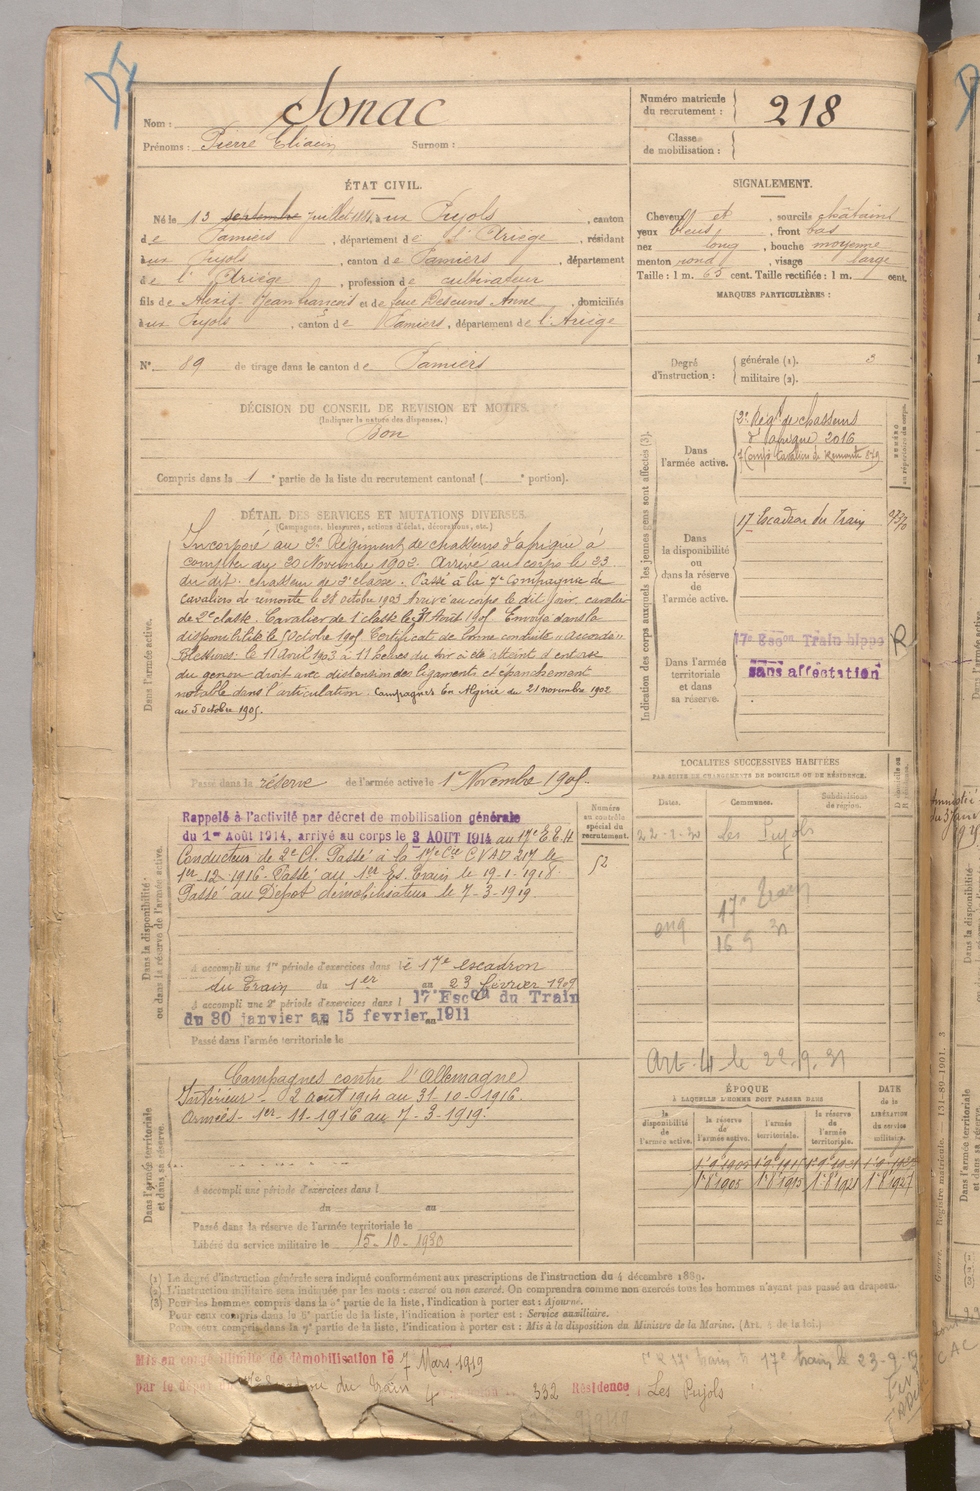 Nom : Sonac
Prénoms : Pierre Surnom :
Numéro matricule du recrutement : 218
Classe de mobilisation :
ÉTAT CIVIL.
Né le 13 septembre juillet 1881, à aux Pujols, canton
de Pamiers, département de l'Ariège, résidant
à aux Pujols, canton de Pamiers, département
de l'Ariège, profession de cultivateur
fils de Alexis Jean François et de feue Descuns Anne, domiciliés
à aux Pujols, canton de Pamiers, département de l'Ariège
N° 89 de tirage dans le canton de Pamiers
SIGNALEMENT.
Cheveux et, sourcils châtains
yeux bleus, front bas
nez long, bouche moyenne
menton rond, visage large
Taille : 1 m. 65 cent. Taille rectifiée : 1 m. cent.
MARQUES PARTICULIÈRES :
Degré d'instruction : générale (1). 3
militaire (2).
DÉCISION DU CONSEIL DE REVISION ET MOTIFS.
(Indiquer la nature des dispenses.)
Bon
Compris dans la 1e partie de la liste du recrutement cantonal ( e portion).
DÉTAIL DES SERVICES ET MUTATIONS DIVERSES.
(Campagnes, blessures, actions d'éclat, décorations, etc.)
Dans l'armée active.
Incorporé au 3e Régiment de chasseurs d'afrique à
compter du 20 Novembre 1902. Arrivé au corps le 23
du dit. chasseur de 2e classe. Passé à la 7e Compagnie de
Cavaliers de remonte le 28 octobre 1903 Arrivé au corps le dit jour. cavalier
de 2e classe. Cavalier de 1e classe le Août 1905. Envoyé dans la
disponibilité le 5 Octobre 1905. Certificat de bonne conduite "Accordé"
Blessures : le 11 Avril 1903 à 11 heures du soir a été atteint d'entorse
du genou droit avec distension des ligaments et épanchement
notable dans l'articulation. Campagnes En Algérie du 21 novembre 1902
au 5 octobre 1905.
Passé dans la réserve de l'armée active le 1er Novembre 1905.
Indication des corps auxquels les jeunes gens sont affectés (3).
NUMÉRO au répertoire du corps.
Dans l'armée active.
3e Régt de chasseurs
d'afrique 2016
7e Comp. Cavaliers de Remonte 849
Dans la disponibilité ou dans la réserve de l'armée active.
17e Escadron du Train
Dans l'armée territoriale et dans sa réserve.
17e Escon Train hippo R
sans affectation
LOCALITÉS SUCCESSIVES HABITÉES
PAR SUITE DE CHANGEMENTS DE DOMICILE OU DE RÉSIDENCE.
Dates. Communes. Subdivisions de région. Domicile ou Résidence
22-1-30 Les Pujols
17e Train
16 9 31
Art. 4 le 22.9.31
Dans la disponibilité ou dans la réserve de l'armée active.
Numéro au contrôle spécial du recrutement.
52
Rappelé à l'activité par décret de mobilisation générale
du 1er Août 1914, arrivé au corps le 3 AOUT 1914 au 17e E.T.H
Conducteur de 2e Cl. Passé à la 17e Cie C.V.A.D 217 le
1er-12-1916. Passé au 1er Es. Train le 19-1-1918.
Passé au Dépôt démobilisateur le 7-3-1919
A accompli une 1re période d'exercices dans le 17e escadron
du Train du 1er au 23 février 1909
A accompli une 2e période d'exercices dans l 17e Escon du Train
du 30 janvier au 15 fevrier 1911
Passé dans l'armée territoriale le
Dans l'armée territoriale et dans sa réserve.
Campagnes contre l'Allemagne
Intérieur - 2 août 1914 au 31-10-1916.
Armées - 1er-11-1916 au 7-3-1919.
A accompli une période d'exercices dans l
du au
Passé dans la réserve de l'armée territoriale le
Libéré du service militaire le 15-10-1930
ÉPOQUE
À LAQUELLE L'HOMME DOIT PASSER DANS
la disponibilité de l'armée active.
la réserve de l'armée active.
l'armée territoriale.
la réserve de l'armée territoriale.
DATE de la LIBÉRATION du service militaire.
1er 8 1905 1er 8 1915 1er 8 1921 1er 8 1927
(1) Le degré d'instruction générale sera indiqué conformément aux prescriptions de l'instruction du 4 décembre 1889.
(2) L'instruction militaire sera indiquée par les mots : exercé ou non exercé. On comprendra comme non exercés tous les hommes n'ayant pas passé au drapeau.
(3) Pour les hommes compris dans la 5e partie de la liste, l'indication à porter est : Ajourné.
Pour ceux compris dans la 6e partie de la liste, l'indication à porter est : Service auxiliaire.
Pour ceux compris dans la 7e partie de la liste, l'indication à porter est : Mis à la disposition du Ministre de la Marine. (Art. 4 de la loi.)
Mis en congé illimité de démobilisation le 7 Mars 1919
par le dépôt du Train 332 Résidence : Les Pujols
17e train le 23-9-19
Guerre. — Registre matricule. — 131-89-1901. 3